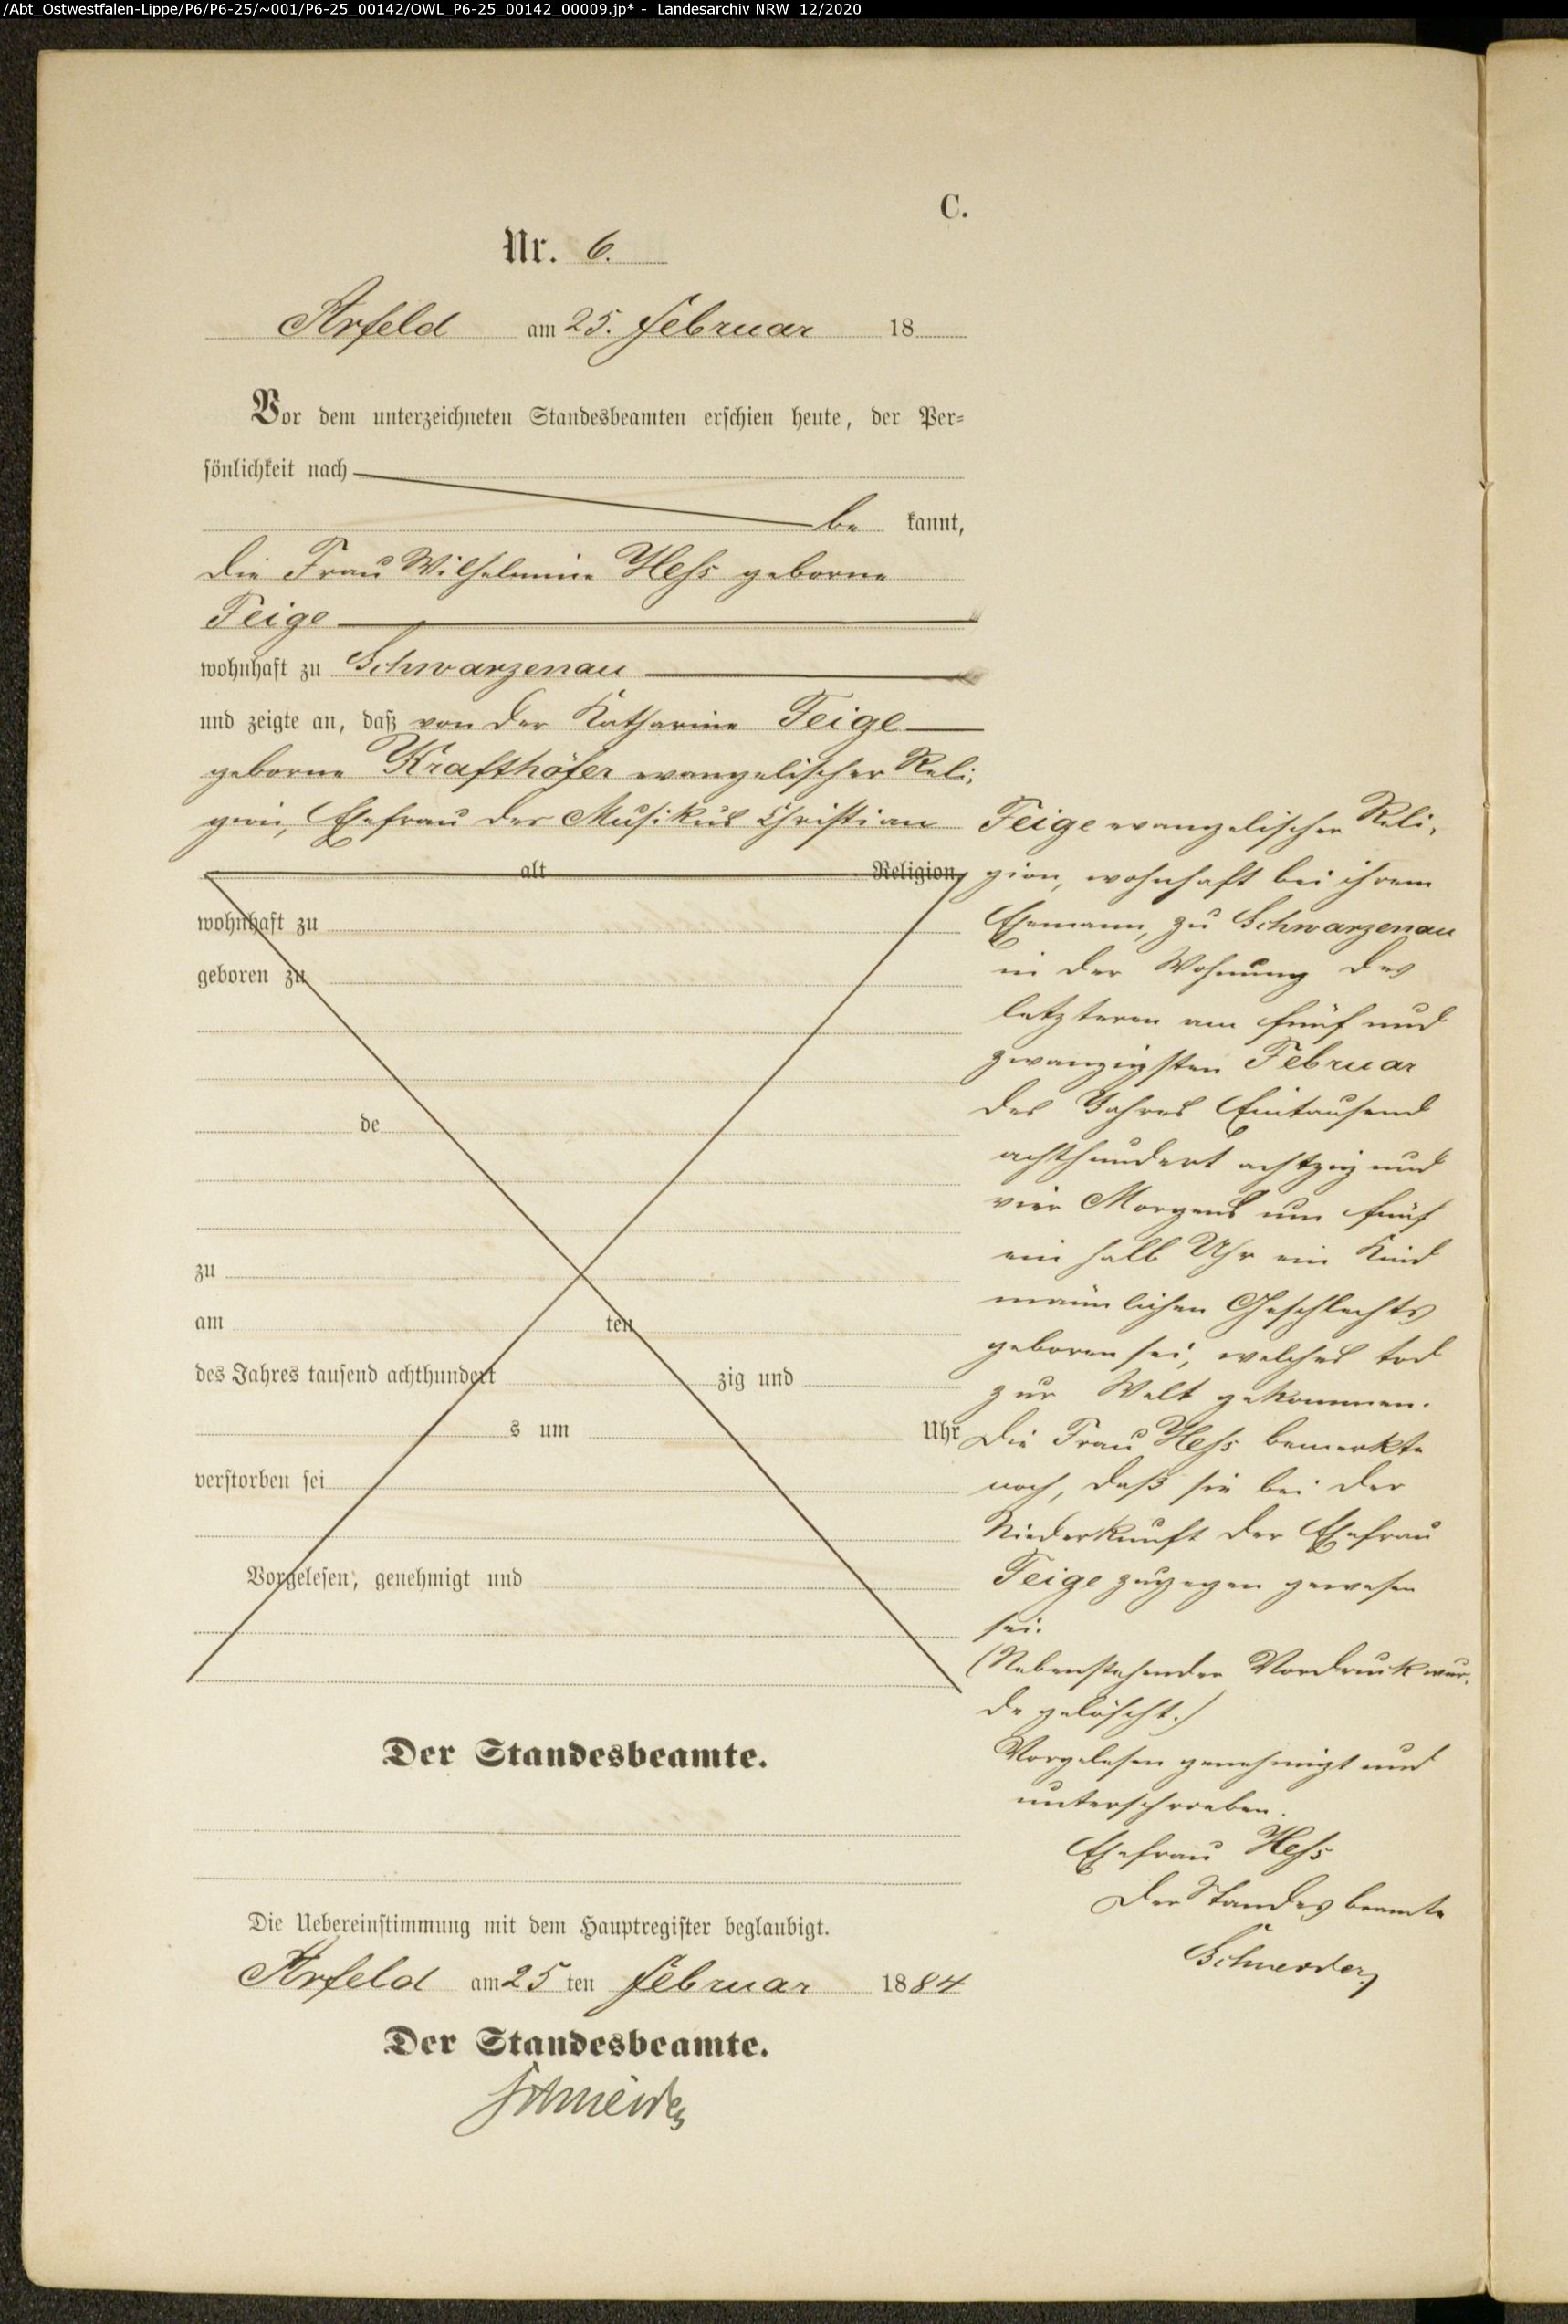 /Abt_Ostwestfalen-Lippe/P6/P6-25/~001/P6-25_00142/OWL_P6-25_00142_00009.jp* - Landesarchiv NRW 12/2020
C.
Nr. 6.
Arfeld am 25. Februar 18
Vor dem unterzeichneten Standesbeamten erschien heute, der Per=
sönlichkeit nach
be kannt,
die Frau Wilhelmine Hess geborne
Feige
wohnhaft zu Schwarzenau
und zeigte an, daß von der Katharine Feige
geborne Krafthöfer evangelischer Reli-
gion, Ehefrau des Musikus Christian
alt Religion,
wohnhaft zu
geboren zu
de
zu
am ten
des Jahres tausend achthundert zig und
s um Uhr
verstorben sei
Vorgelesen, genehmigt und
Feige evangelischer Reli-
gion, wohnhaft bei ihrem
Ehemann, zu Schwarzenau
in der Wohnung des
letzteren am fünf und
zwanzigsten Februar
des Jahres Eintausend
achthundert achtzig und
vier Morgens um fünf
ein halb Uhr ein Kind
männlichen Geschlechts
geboren sei, welches tod
zur Welt gekommen.
Die Frau Hess bemerkte
noch, daß sie bei der
Niederkunft der Ehefrau
Feige zugegen gewesen
sei.
(Nebenstehender Vordruck wur-
de gelöscht.)
Vorgelesen genehmigt und
unterschrieben.
Ehefrau Hess
Der Standesbeamte
Schneider
Der Standesbeamte.
Die Uebereinstimmung mit dem Hauptregister beglaubigt.
Arfeld am 25 ten Februar 1884
Der Standesbeamte.
Schneider